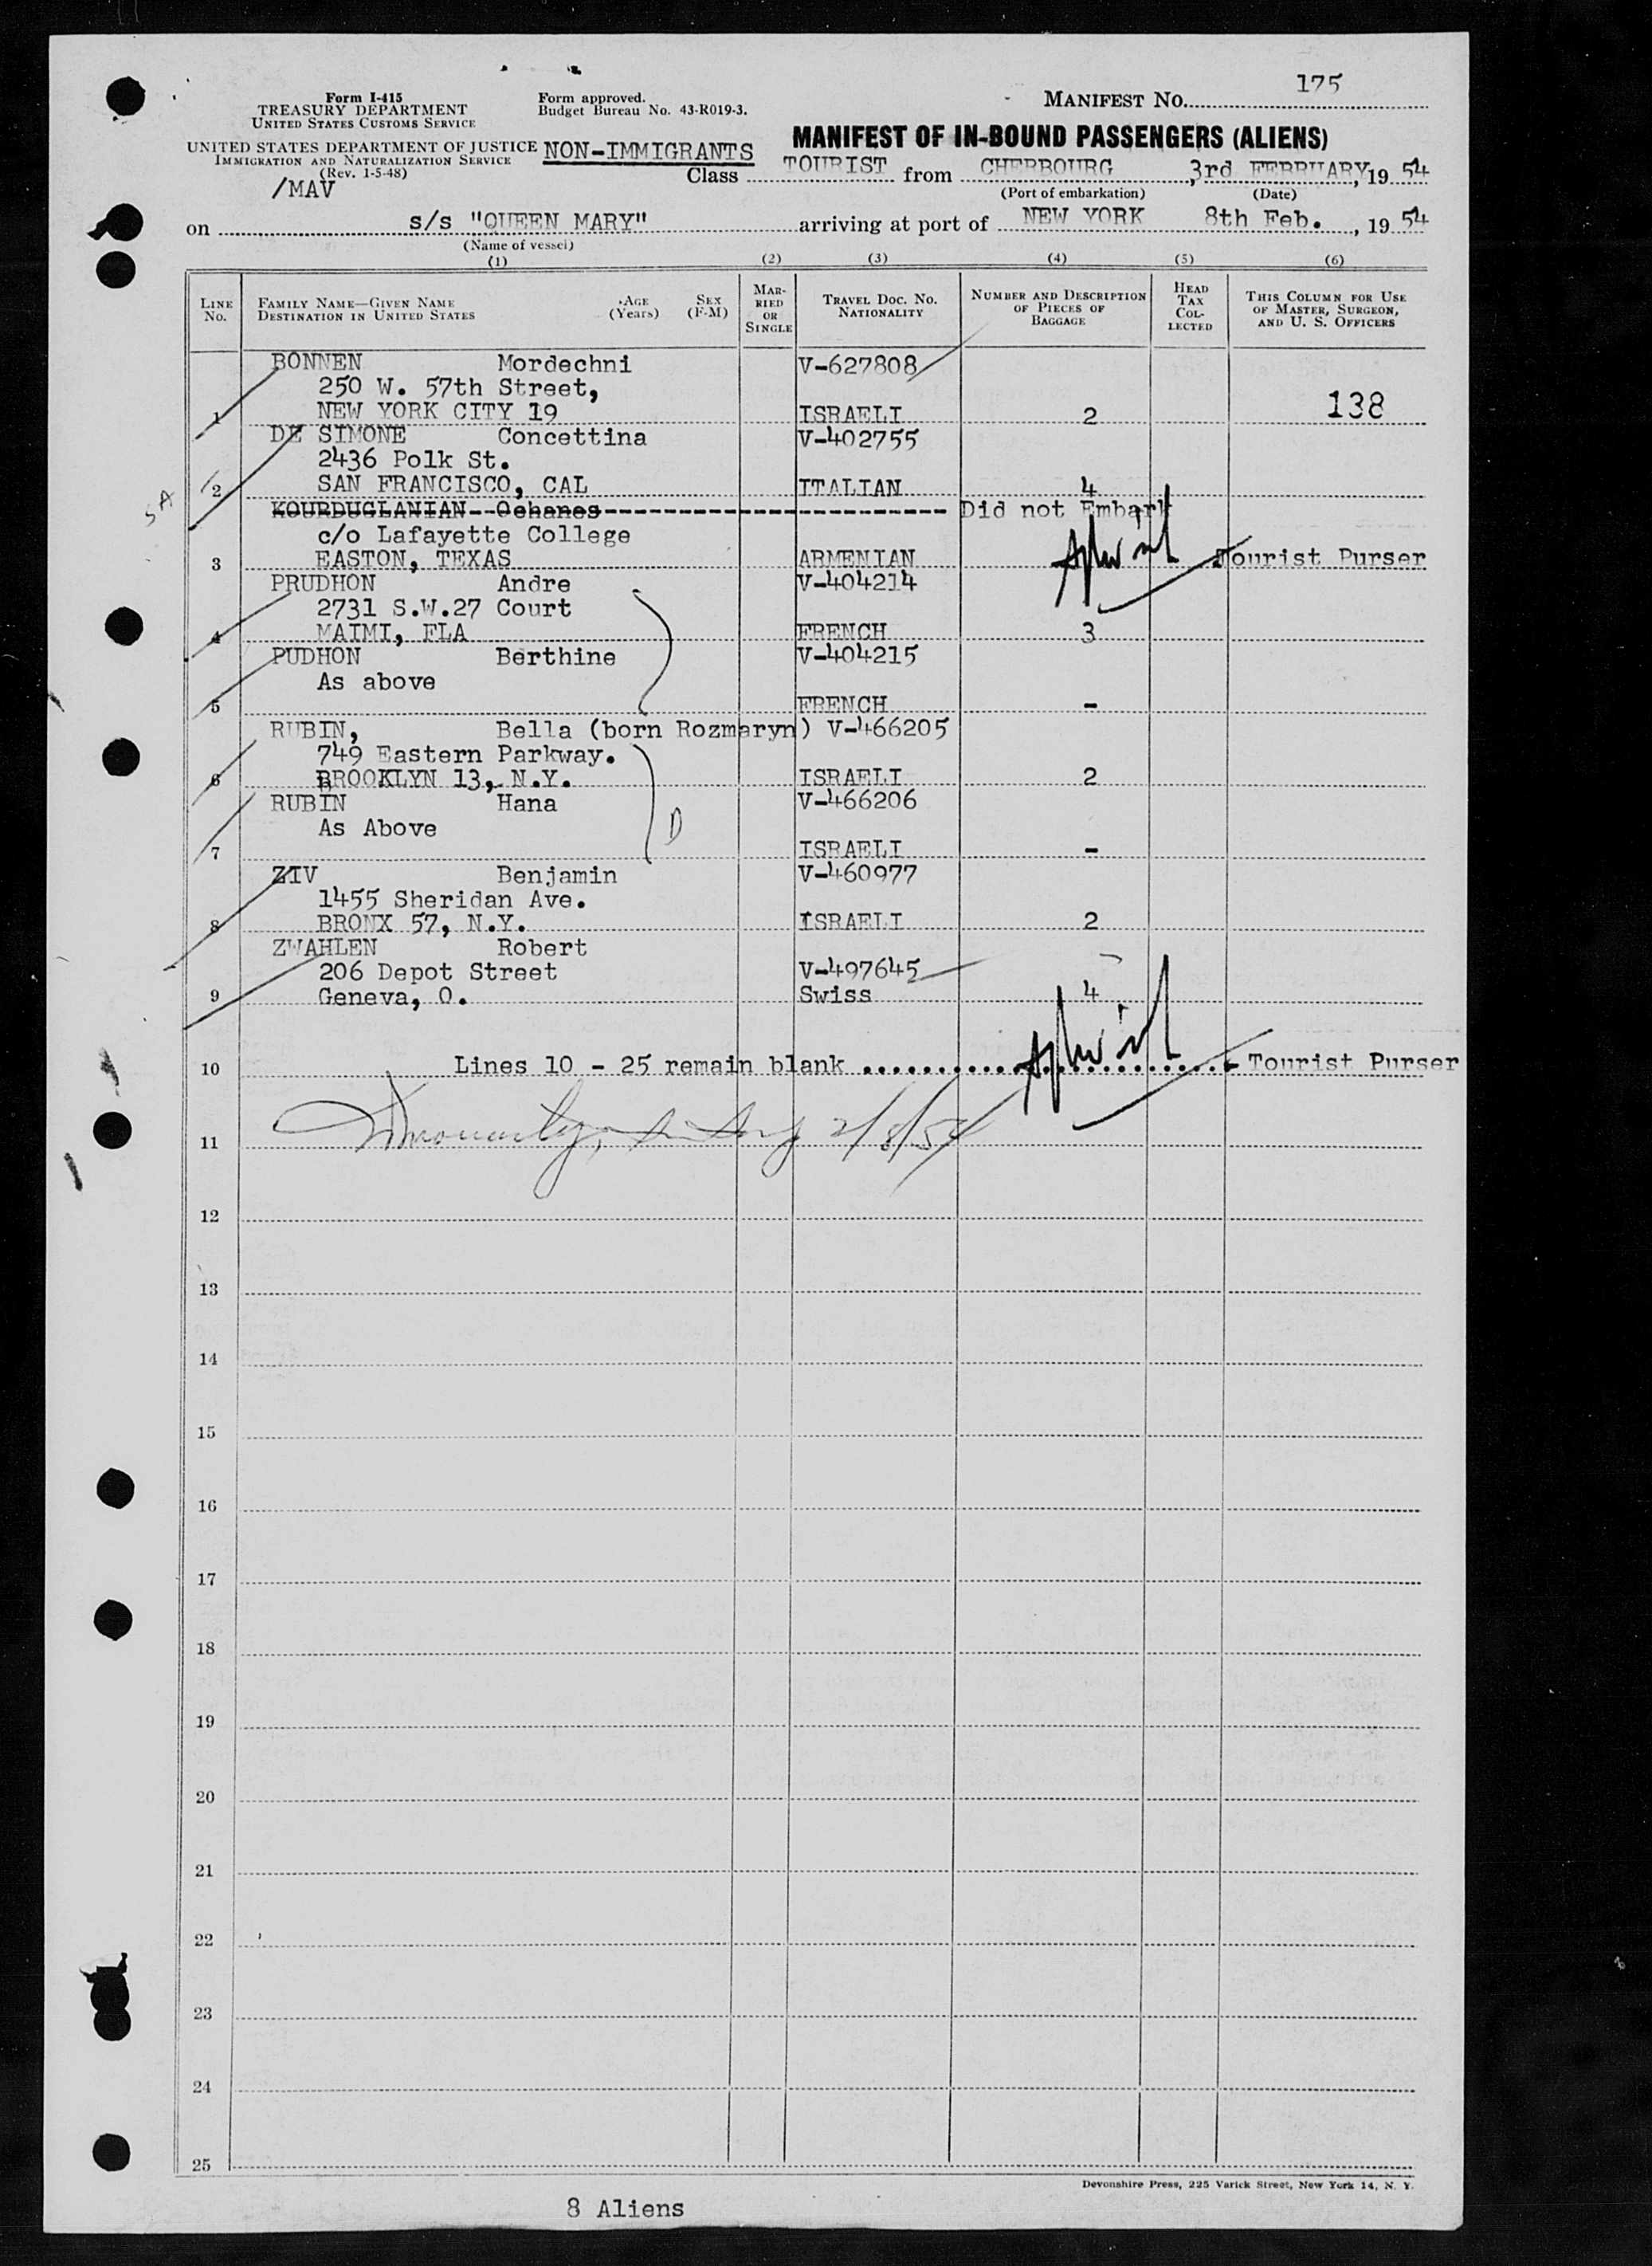 Form I-415
TREASURY DEPARTMENT
UNITED STATES CUSTOMS SERVICE
UNITED STATES DEPARTMENT OF JUSTICE
IMMIGRATION AND NATURALIZATION SERVICE
(Rev. 1-5-48)
/MAV
Form approved.
Budget Bureau No. 43-R019-3.
NON-IMMIGRANTS
MANIFEST NO. 175
MANIFEST OF IN-BOUND PASSENGERS (ALIENS)
Class TOURIST from CHERBOURG, 3rd FEBRUARY, 19 54
(Port of embarkation) (Date)
on s/s "QUEEN MARY" arriving at port of NEW YORK 8th Feb., 19 54
(Name of vessel)
(1) (2) (3) (4) (5) (6)
LINE No. FAMILY NAME—GIVEN NAME DESTINATION IN UNITED STATES AGE (Years) SEX (F-M) MARRIED OR SINGLE TRAVEL DOC. NO. NATIONALITY NUMBER AND DESCRIPTION OF PIECES OF BAGGAGE HEAD TAX COLLECTED THIS COLUMN FOR USE OF MASTER, SURGEON, AND U. S. OFFICERS
BONNEN Mordechni V-627808
250 W. 57th Street,
1 NEW YORK CITY 19 ISRAELI 2 138
DE SIMONE Concettina V-402755
2436 Polk St.
2 SAN FRANCISCO, CAL ITALIAN 4
SA
KOURDUGLANIAN--Oehanes-------- Did not Embark
c/o Lafayette College
3 EASTON, TEXAS ARMENIAN Tourist Purser
PRUDHON Andre V-404214
2731 S.W.27 Court
4 MAIMI, FLA FRENCH 3
PUDHON Berthine V-404215
As above
5 FRENCH -
RUBIN, Bella (born Rozmaryn) V-466205
749 Eastern Parkway.
6 BROOKLYN 13, N.Y. ISRAELI 2
RUBIN Hana V-466206
As Above D
7 ISRAELI -
ZIV Benjamin V-460977
1455 Sheridan Ave.
8 BRONX 57, N.Y. ISRAELI 2
ZWAHLEN Robert
206 Depot Street V-497645
9 Geneva, O. Swiss 4
10 Lines 10 - 25 remain blank ........................ Tourist Purser
11 2/8/54
12
13
14
15
16
17
18
19
20
21
22
23
24
25
Devonshire Press, 225 Varick Street, New York 14, N. Y.
8 Aliens